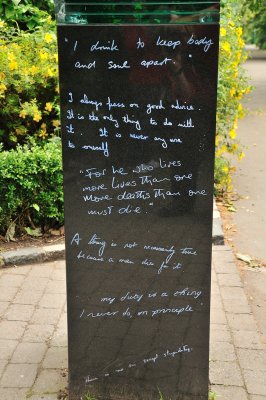 "I drink to keep body
and soul apart."
I always pass on good advice.
It is the only thing to do with
it. It is never any use
to oneself
"For he who lives
more lives than one
More deaths than one
must die."
A thing is not necessarily true
because a man dies for it
my duty is a thing
I never do, on principle
There is no sin except stupidity.